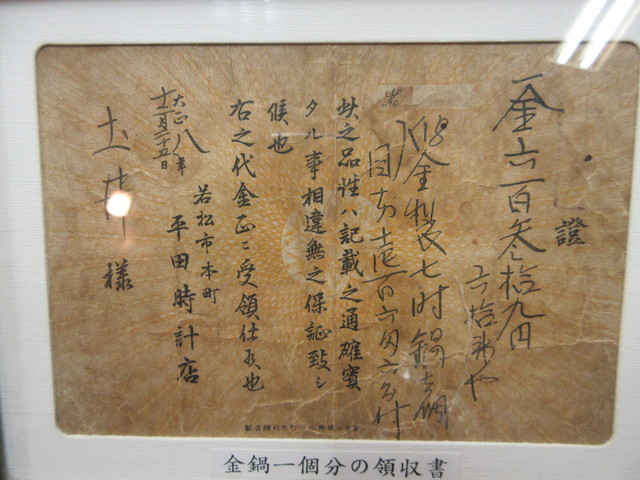 證
一金六百参拾九円
六拾銭や
金製七時鍋壱個
目方壱百六匁六分付
此之品性ハ記載之通確實
タル事相違無之保証致シ
候也
右之代金正ニ受領仕候也
大正八年
十一月二十五日
若松市本町
平田時計店
土井様
金鍋一個分の領収書